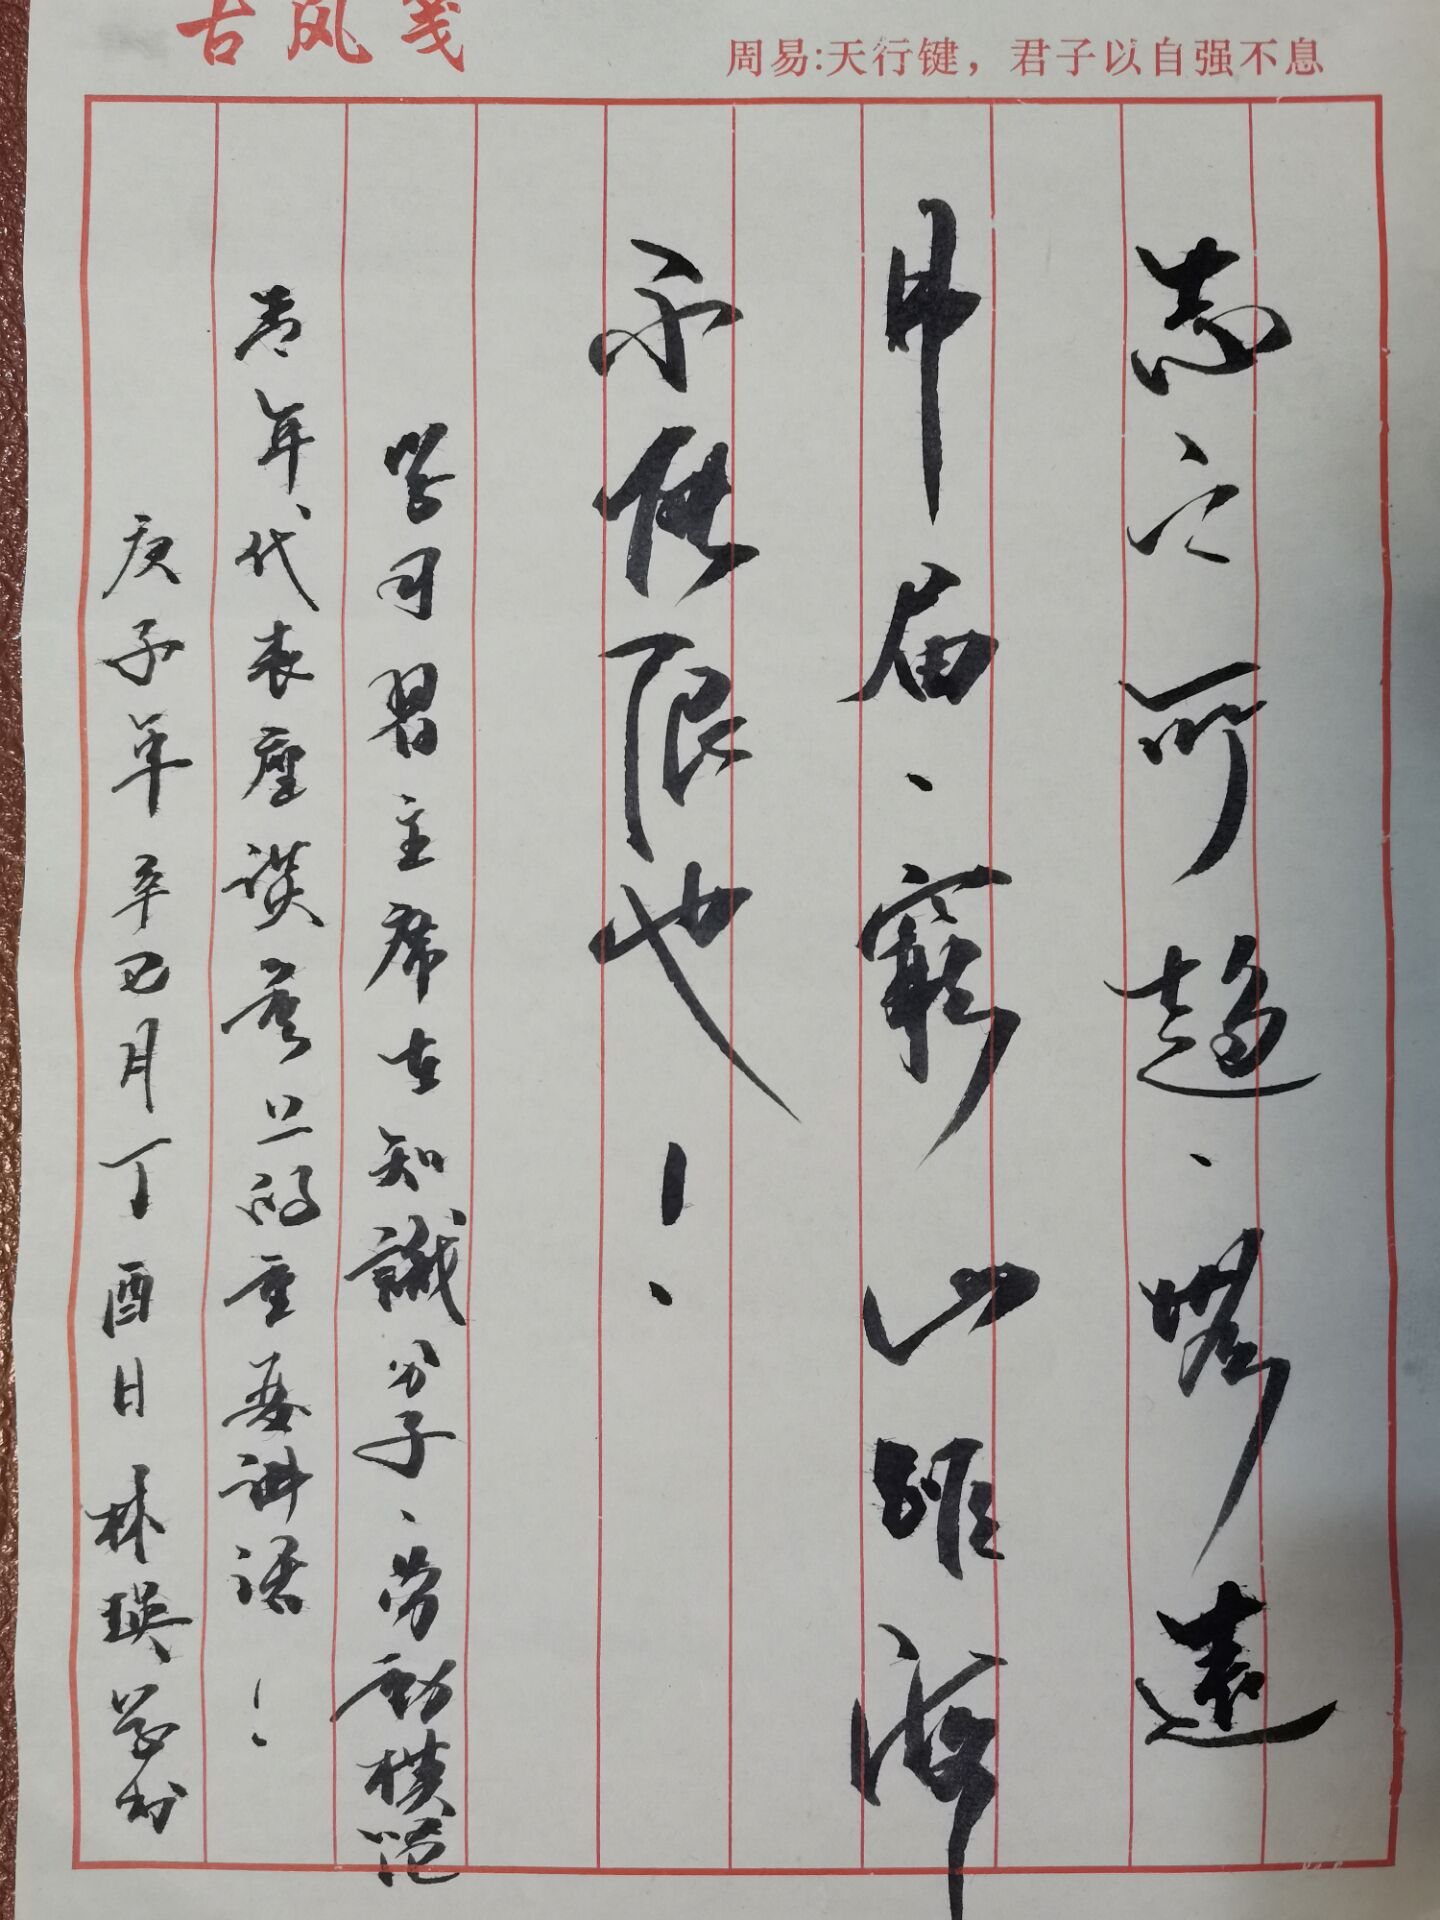 古风笺
周易:天行键，君子以自强不息
志之所趨、無遠
弗届、窮山距海
不能限也！
学习習主席在知識分子、劳動模范
青年代表座談会上的重要讲话！
庚子年辛巳月丁酉日林瑛学书